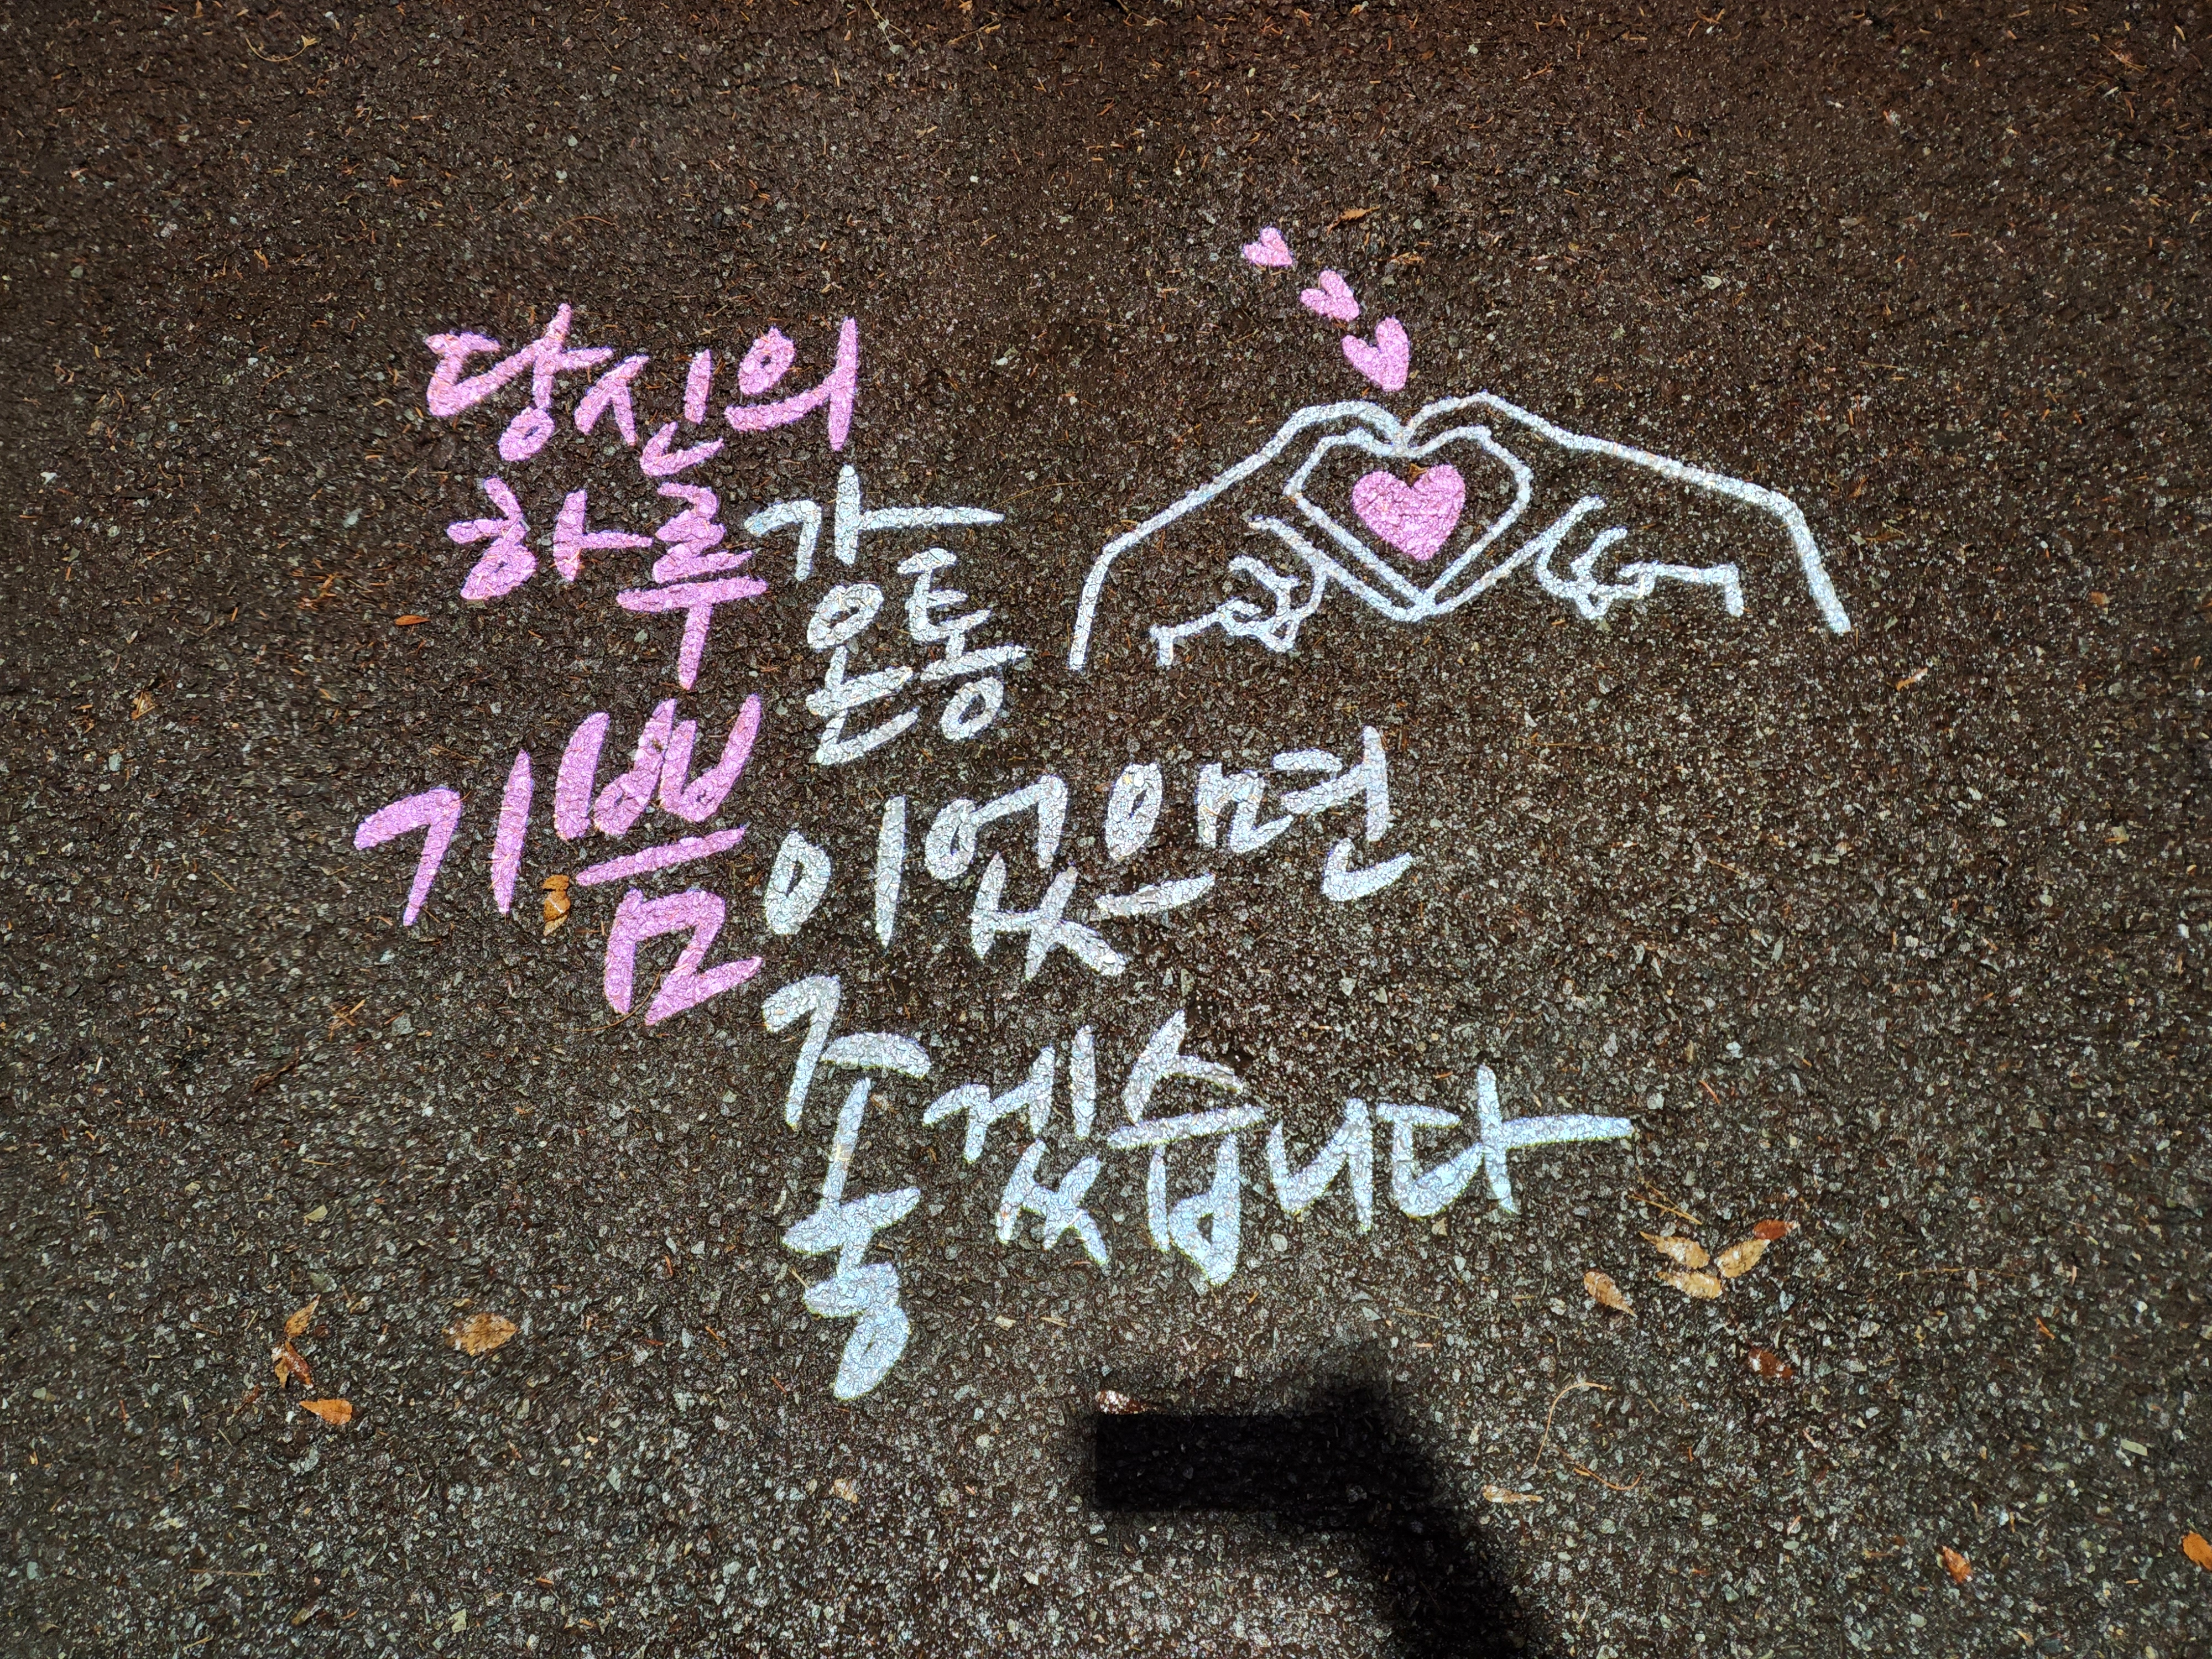 당신의
하루가
온통
기쁨이었으면
좋겠습니다